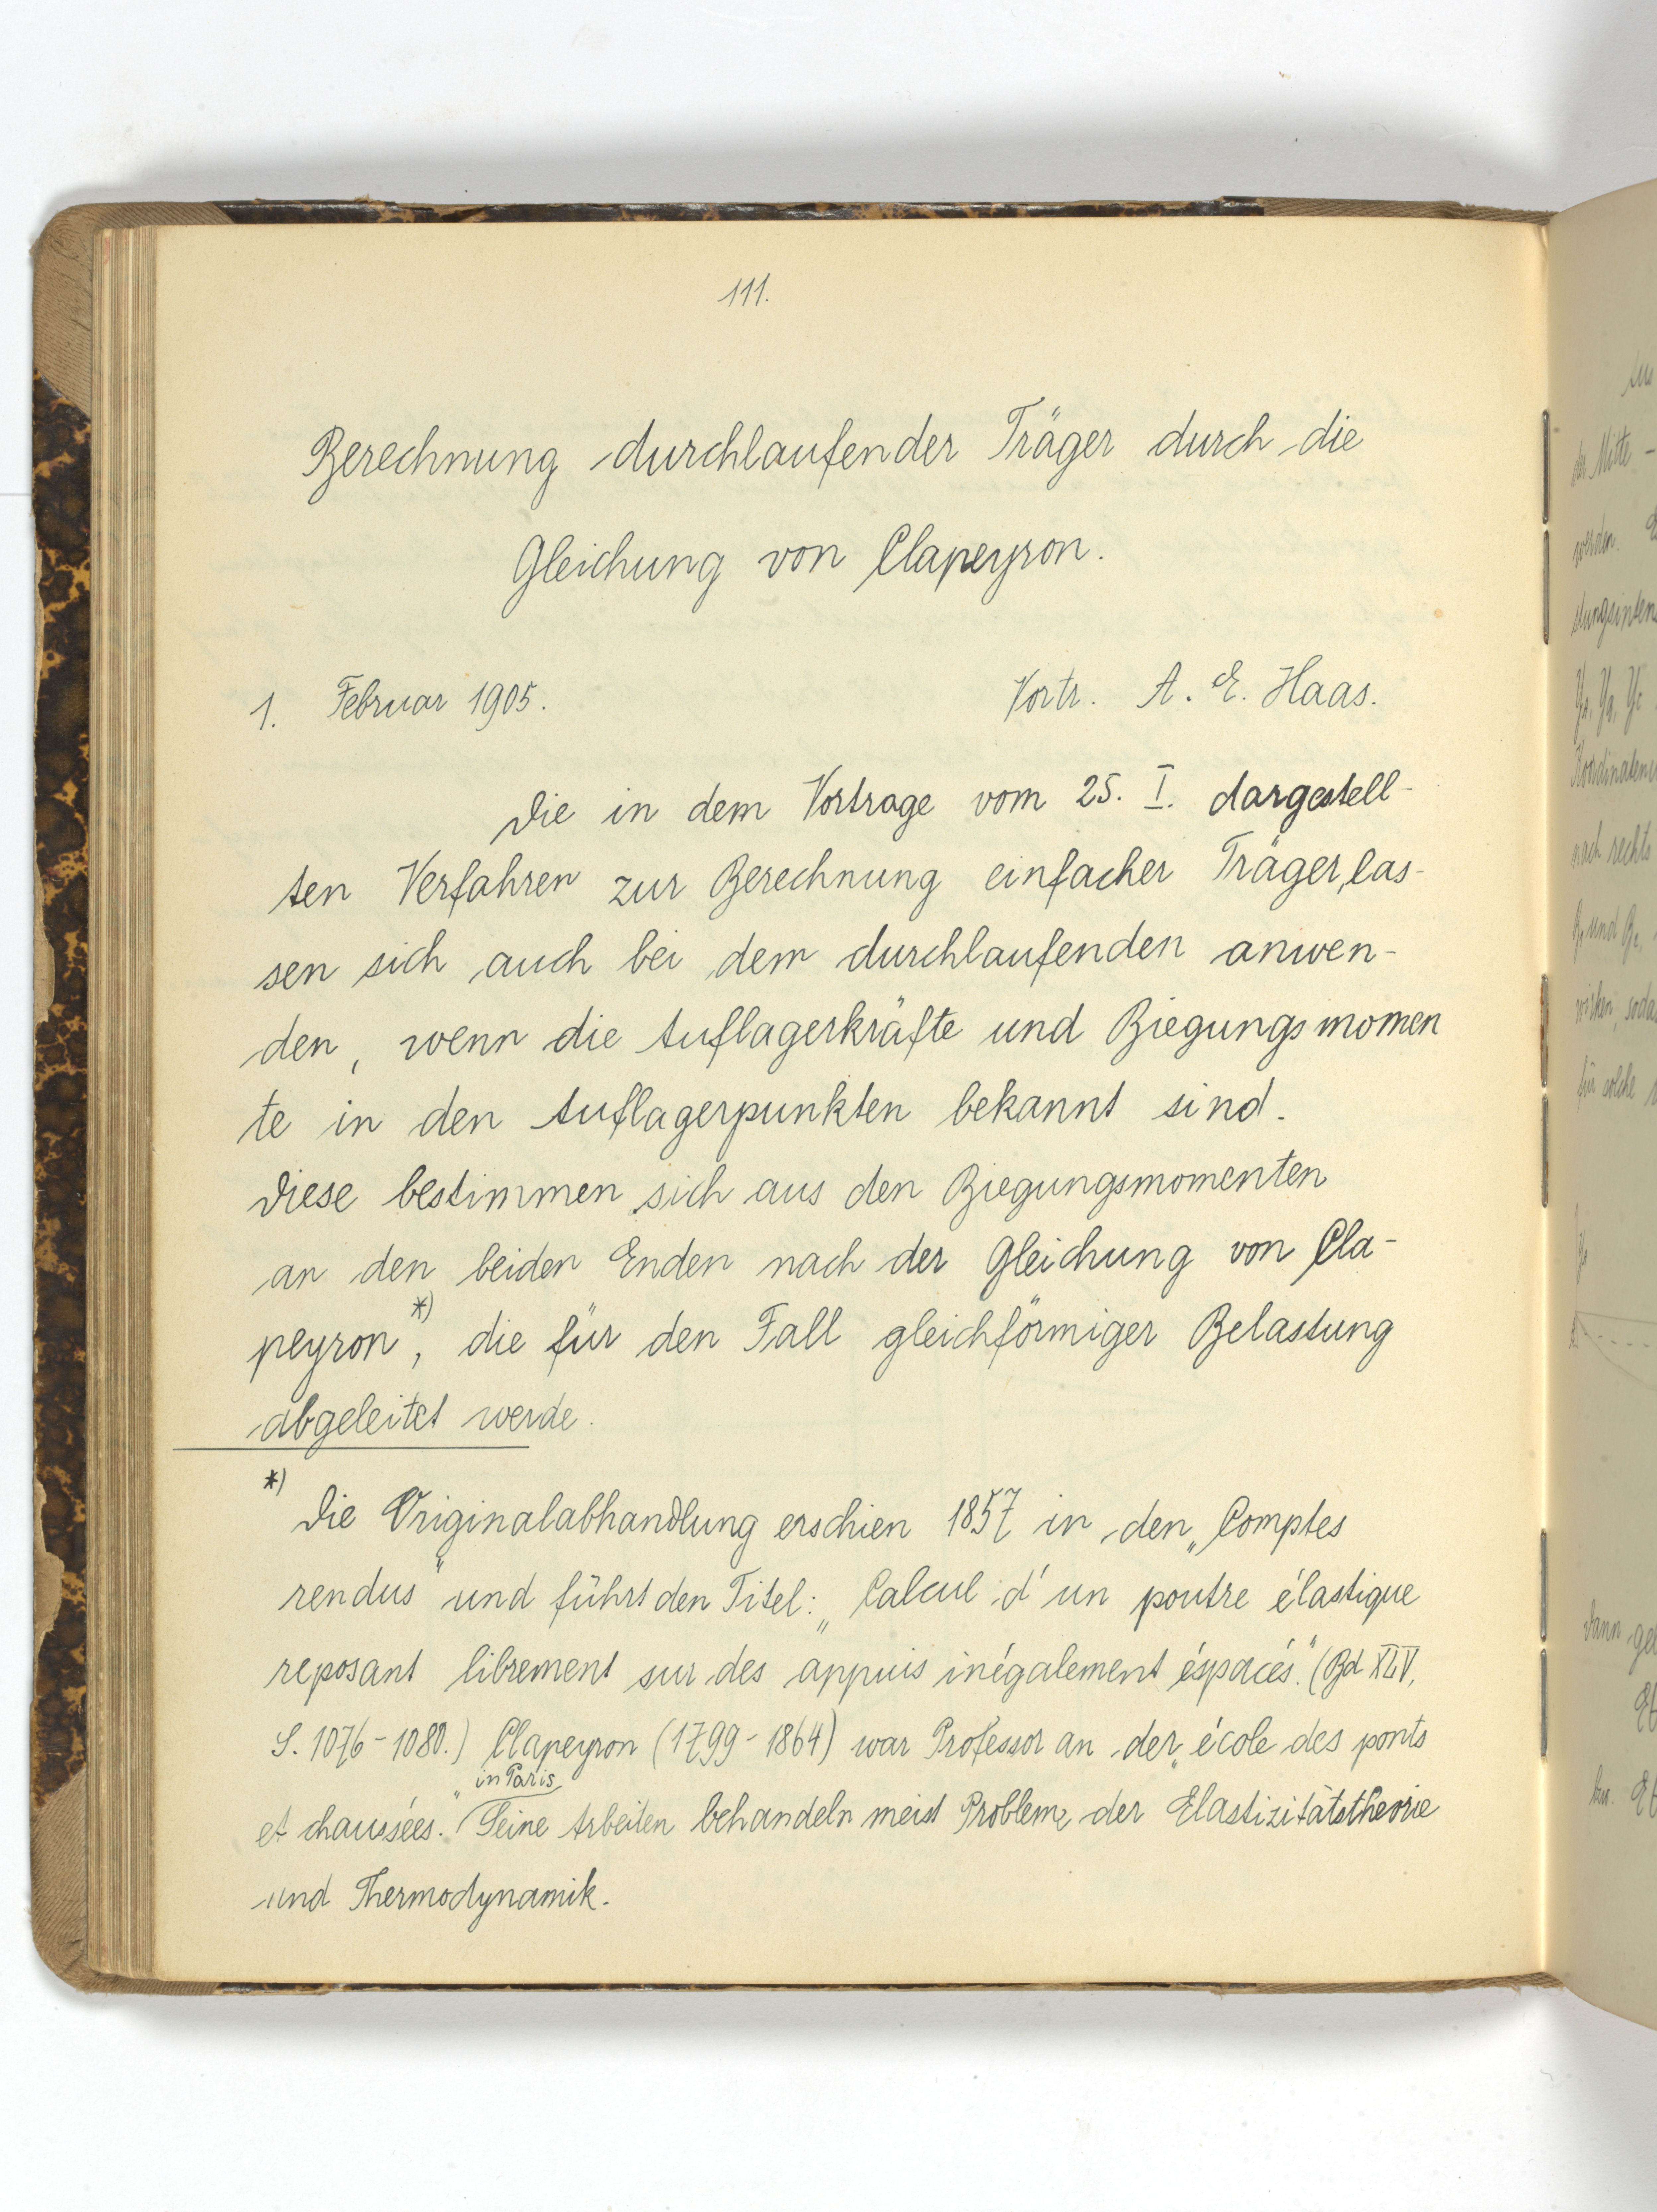 111.
Berechnung durchlaufender Träger durch die
Gleichung von Clapeyron.
1. Februar 1905.
Vortr. A. E. Haas.
Die in dem Vortrage vom 25. I. dargestell-
ten Verfahren zur Berechnung einfacher Träger, las-
sen sich auch bei dem durchlaufenden anwen-
den, wenn die Auflagerkräfte und Biegungsmomen
te in den Auflagerpunkten bekannt sind.
Diese bestimmen sich aus den Biegungsmomenten
an den beiden Enden nach der Gleichung von Cla-
peyron*), die für den Fall gleichförmiger Belastung
abgeleitet werde.
*) Die Originalabhandlung erschien 1857 in den „Comptes
rendus" und führt den Titel: „Calcul d'un poutre élastique
reposant librement sur des appuis inégalement éspacés." (Bd XLV,
S. 1076-1080.) Clapeyron (1799-1864) war Professor an der „école des ponts
et chaussées." in Paris Seine Arbeiten behandeln meist Probleme der Elastizitätstheorie
und Thermodynamik.
der Mitte -
werden.
nach rechts